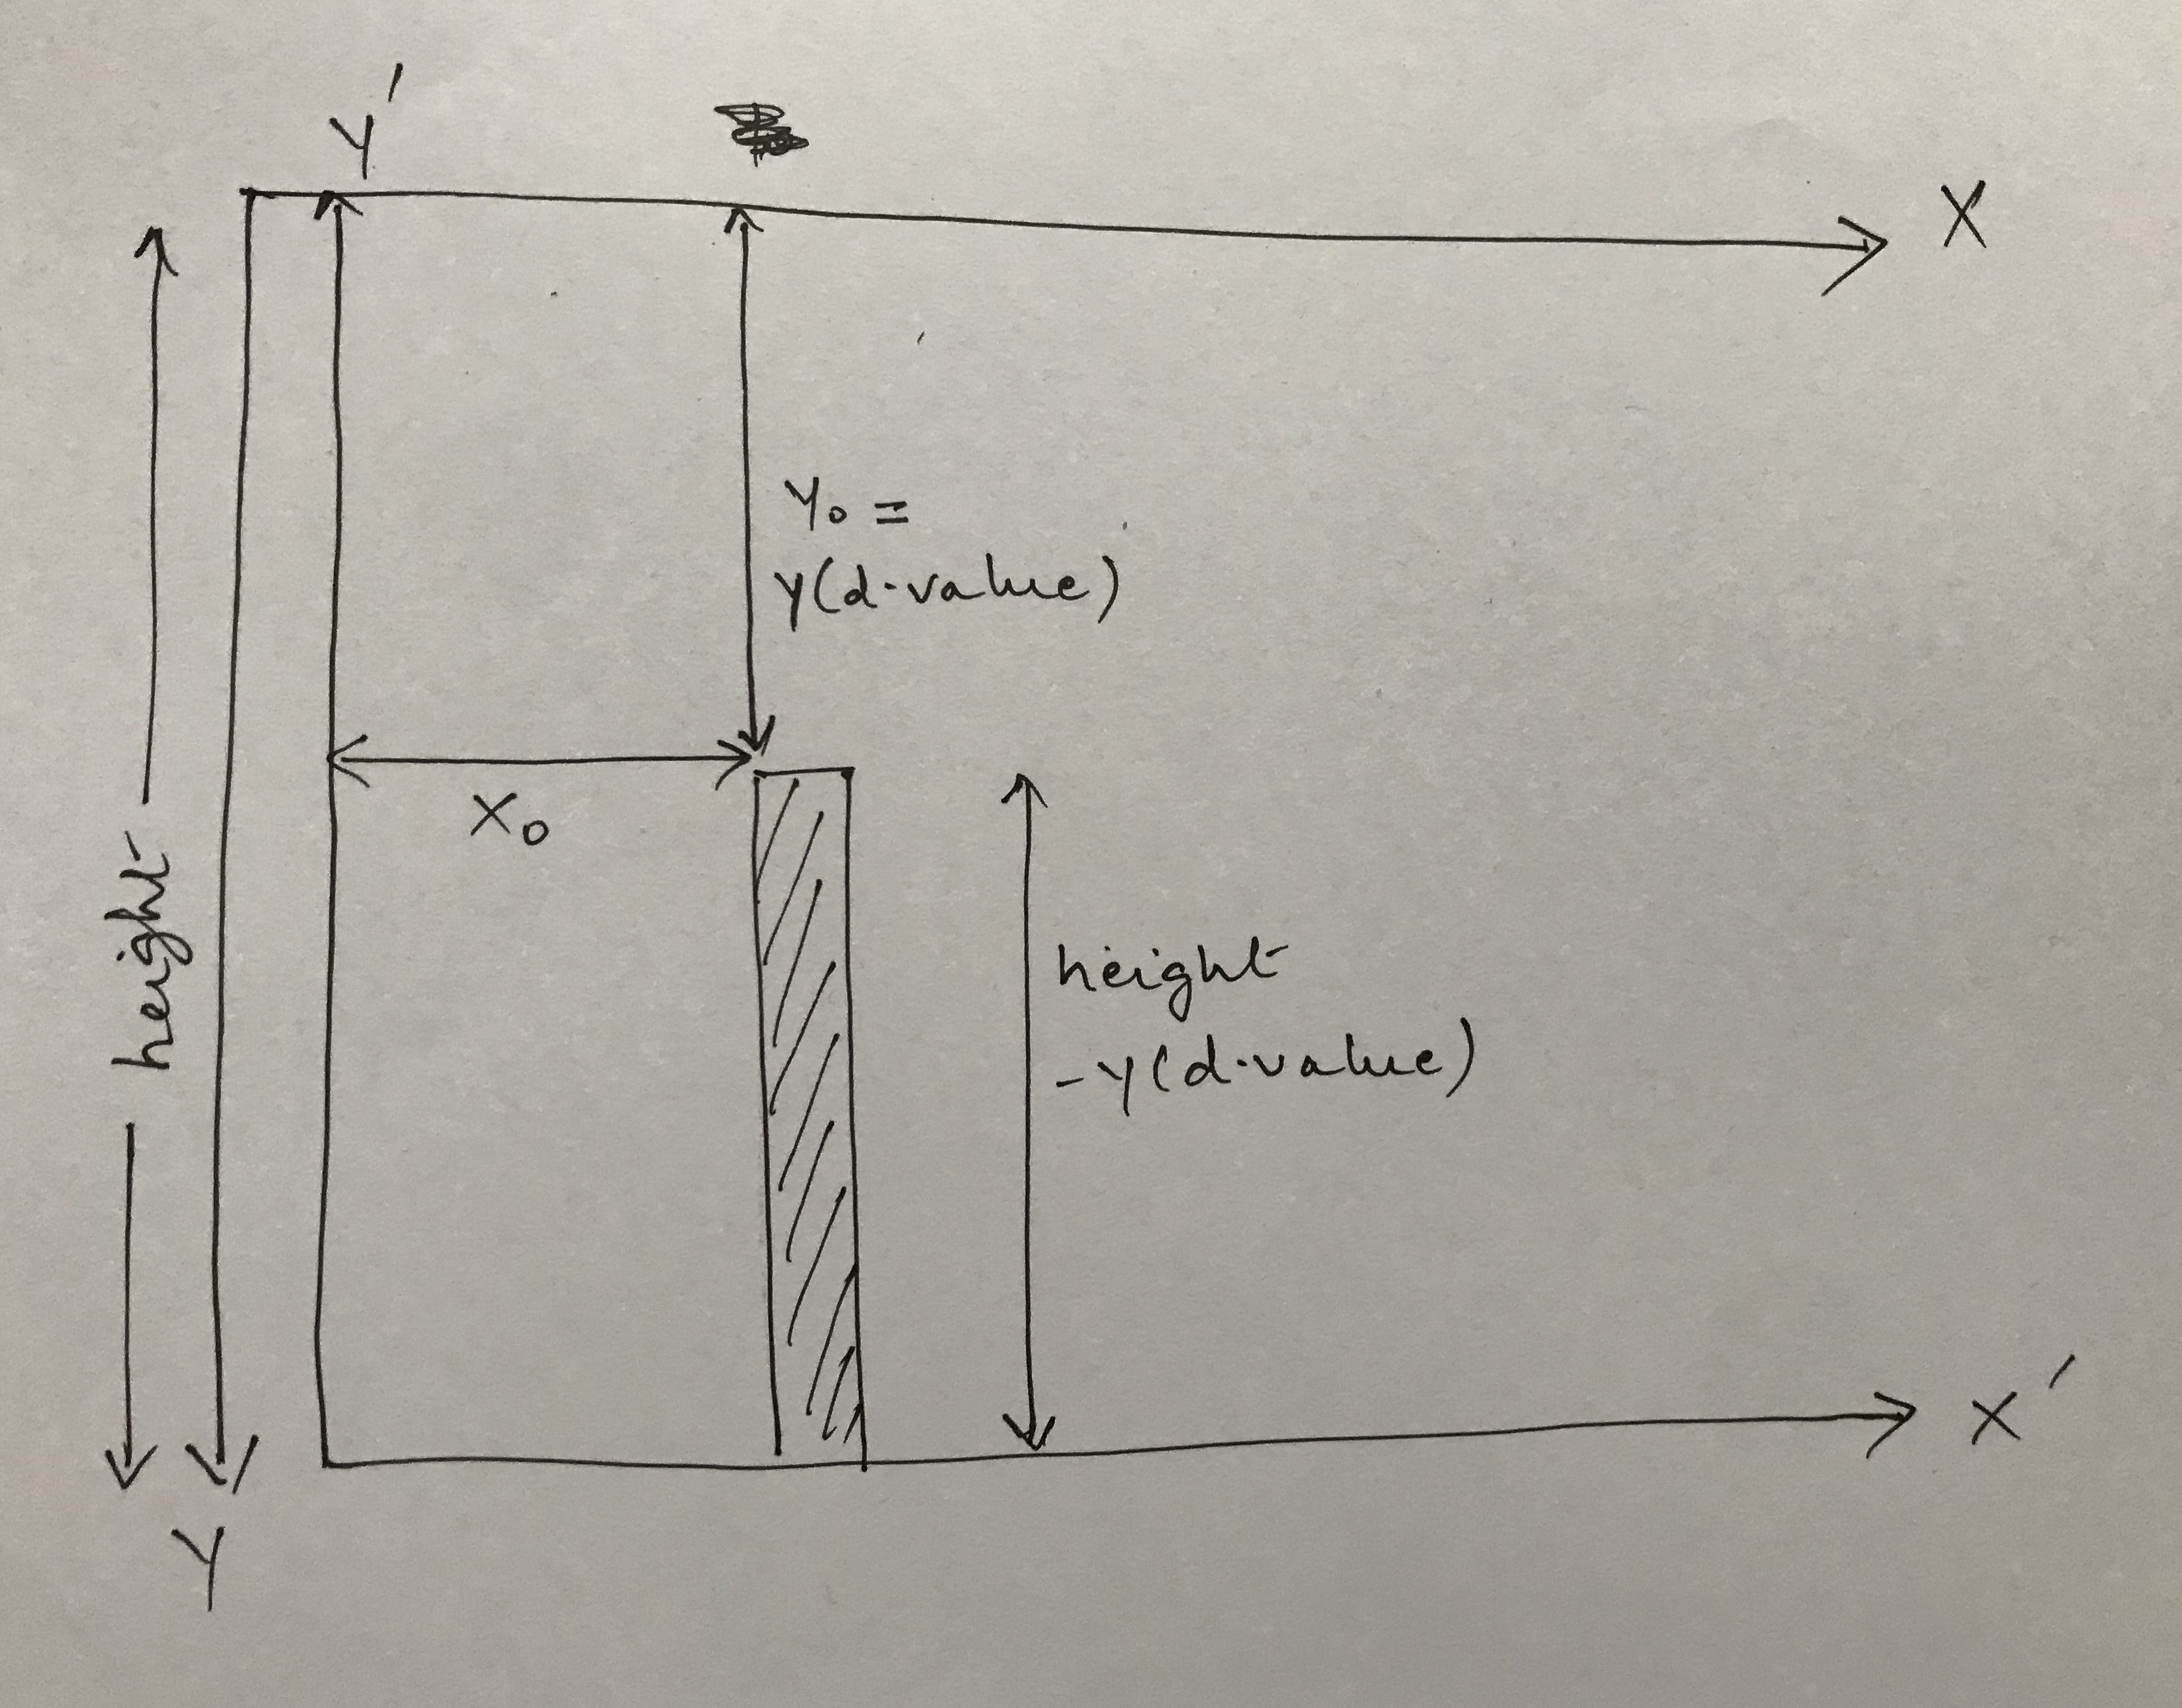 Y'
X
Y₀ =
y(d.value)
X₀
height
height
-y(d.value)
X'
Y